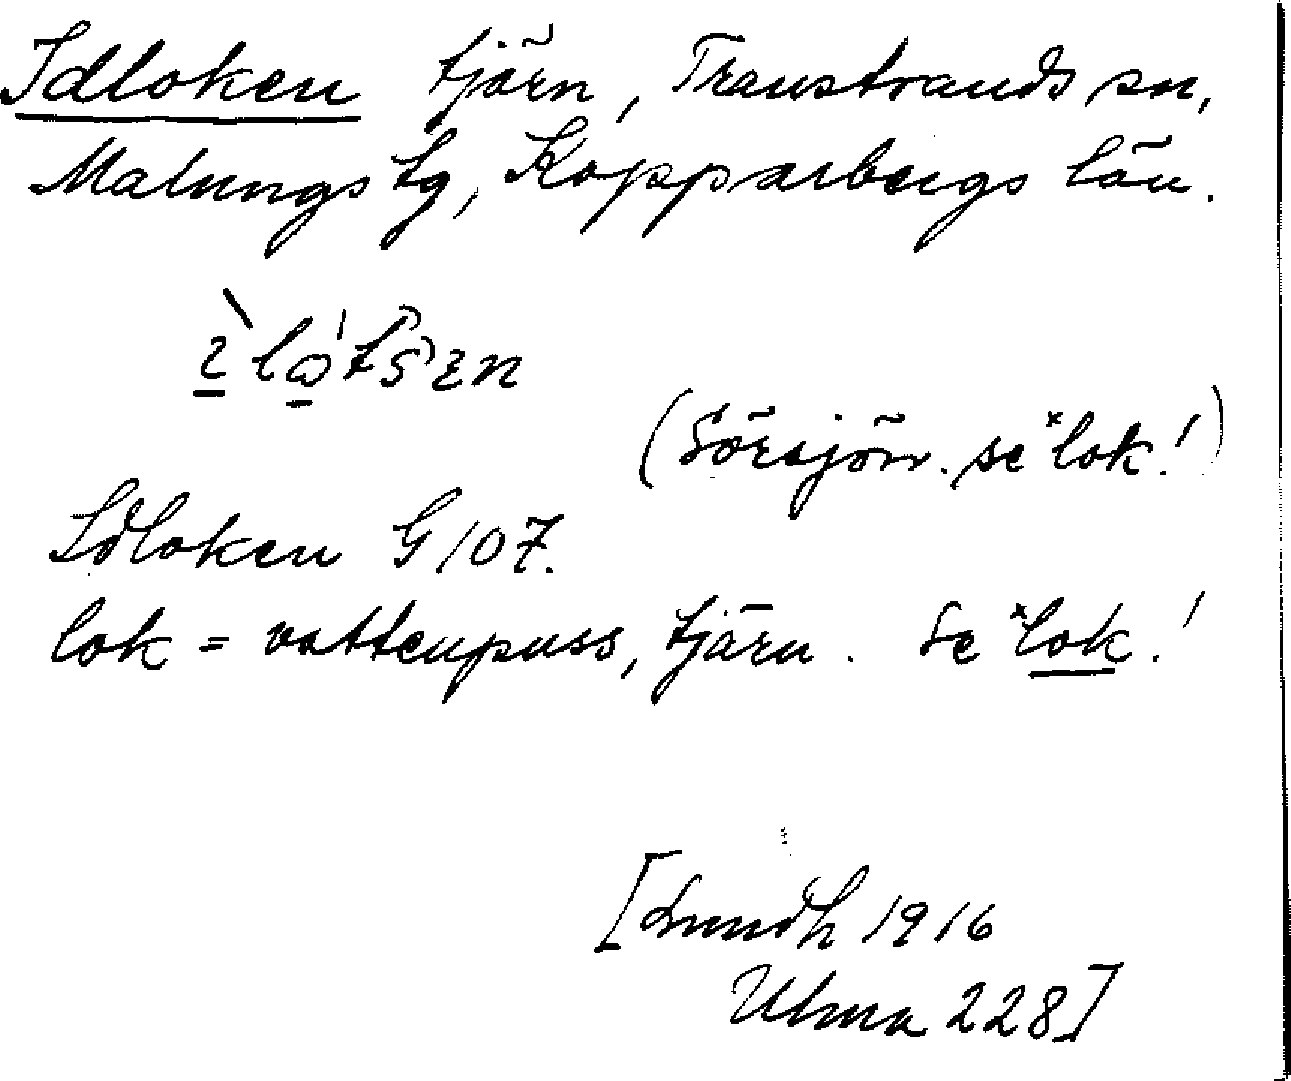 Idloken tjärn, Transtrands sn,
Malungs tg, Kopparbergs län.
(Sörsjön. se *lok!)
Idloken G 107.
lok = vattenpuss, tjärn. Se *lok!
[Lundh 1916
Ulma 228]